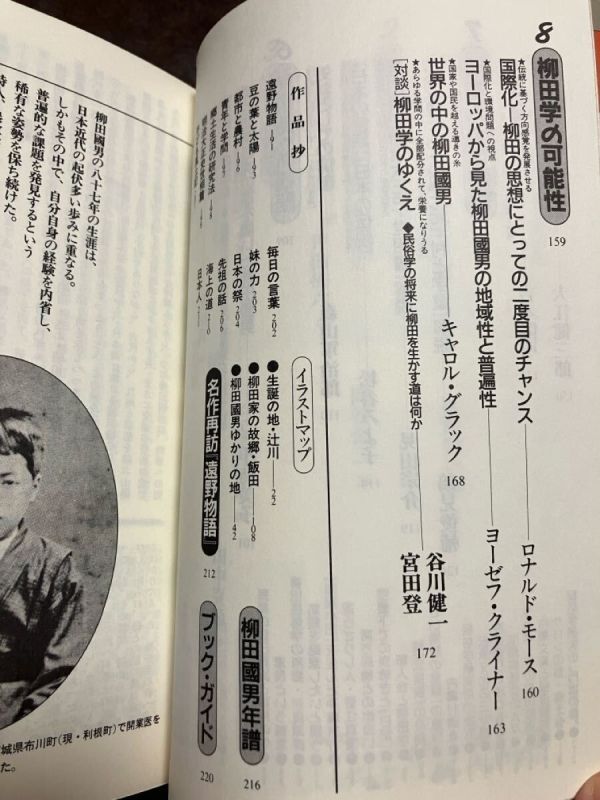 8 柳田学の可能性 159
★伝統に基づく方向感覚を発展させる
国際化―柳田の思想にとっての二度目のチャンス――ロナルド・モース 160
★国際化と環境問題への視点
ヨーロッパから見た柳田國男の地域性と普遍性――ヨーゼフ・クライナー 163
★国家や国民を越える導きの糸
世界の中の柳田國男――キャロル・グラック 168
★あらゆる学問の中に全部配分されて、栄養になりうる
[対談]柳田学のゆくえ ◆民俗学の将来に柳田を生かす道は何か 谷川健一 宮田登 172
作品抄
遠野物語 191
豆の葉と太陽 193
都市と農村 196
青年と学問 197
郷土生活の研究法
明治大正史世相篇
毎日の言葉 202
妹の力 203
日本の祭 204
先祖の話 206
海上の道 210
日本人 211
イラストマップ
●生誕の地・辻川――22
●柳田家の故郷・飯田――108
●柳田國男ゆかりの地――42
名作再訪『遠野物語』 212
柳田國男年譜 216
ブック・ガイド 220
柳田國男の八十七年の生涯は、
日本近代の起伏多い歩みに重なる。
しかもその中で、自分自身の経験を内省し、
普遍的な課題を発見するという
稀有な姿勢を保ち続けた。
城県布川町(現・利根町)で開業医を
た。